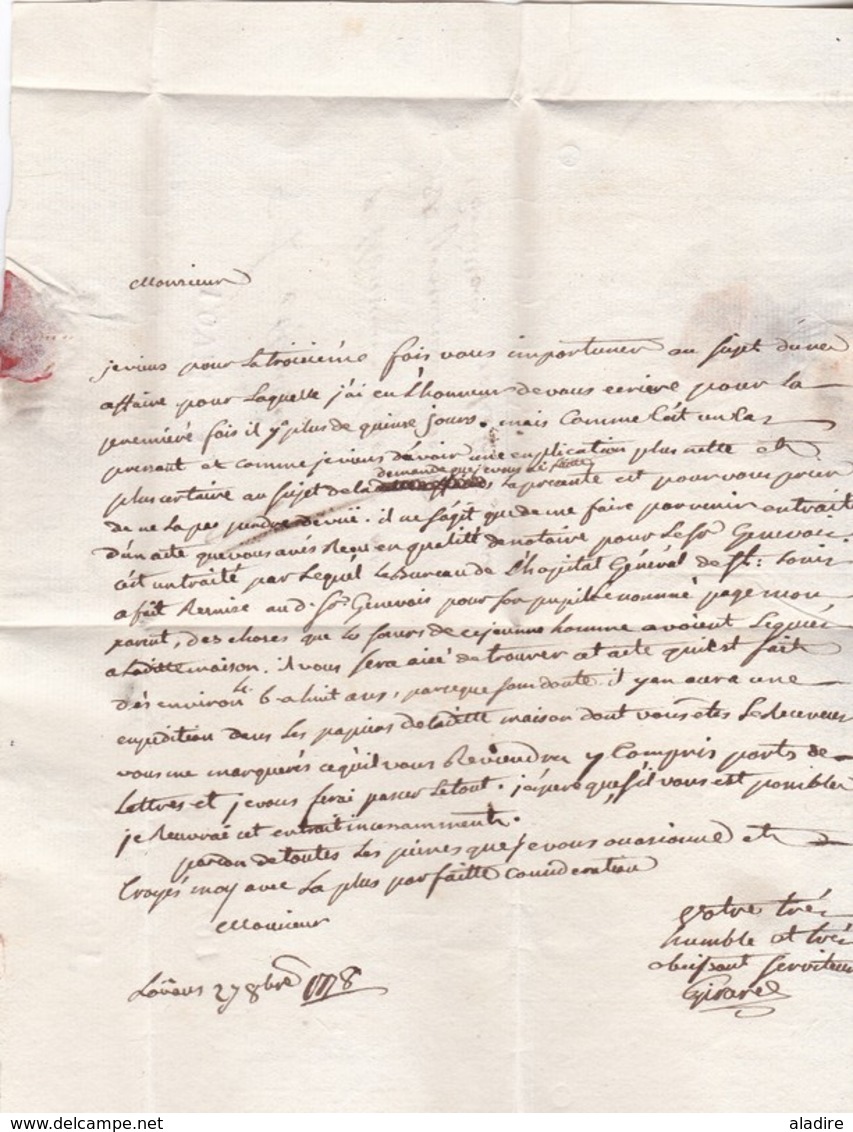 Monsieur
je viens pour la troisième fois vous importuner au sujet d'une
affaire pour laquelle j'ai eu l'honneur de vous ecrire pour la
premiere fois il y a plus de quinse jours. mais comme c'est un cas
pressant et comme je viens d'avoir une explication plus nette et
demande que je vous ai faitte
plus certaine au sujet de la , la presente est pour vous prier
de ne la pas perdre de vüe. il ne s'agit que de me faire parvenir extrait
d'un acte que vous avés Reçu en qualité de notaire pour le Sr Genevois.
c'est un traité par Lequel Le Bureau de L'hopital Général de St: Louis
a fait Remise au d. Sr Genevois pour son pupille nommé page mon
parent, des choses que les soeurs de ce jeune homme avoient Leguées
a laditte maison. il vous sera aisé de trouver cet acte qui est fait
dès environ 6 a huit ans, parceque sans doute il y en aura une
expédition dans Les papiers de laditte maison dont vous etes Le Receveur
vous me marquerés ce qu'il vous Reviendra y compris ports de
Lettres et je vous ferai passer Le tout. j'espere que s'il vous est possible
je Recevrai cet extrait incessamment.
pardon de toutes Les peines que je vous occasionne et
croyés moy avec La plus parfaitte consideration
Monsieur
votre très
humble et très
obeissant serviteur
Girard
Loüans 27 8bre 1778
aladire
www.delcampe.net